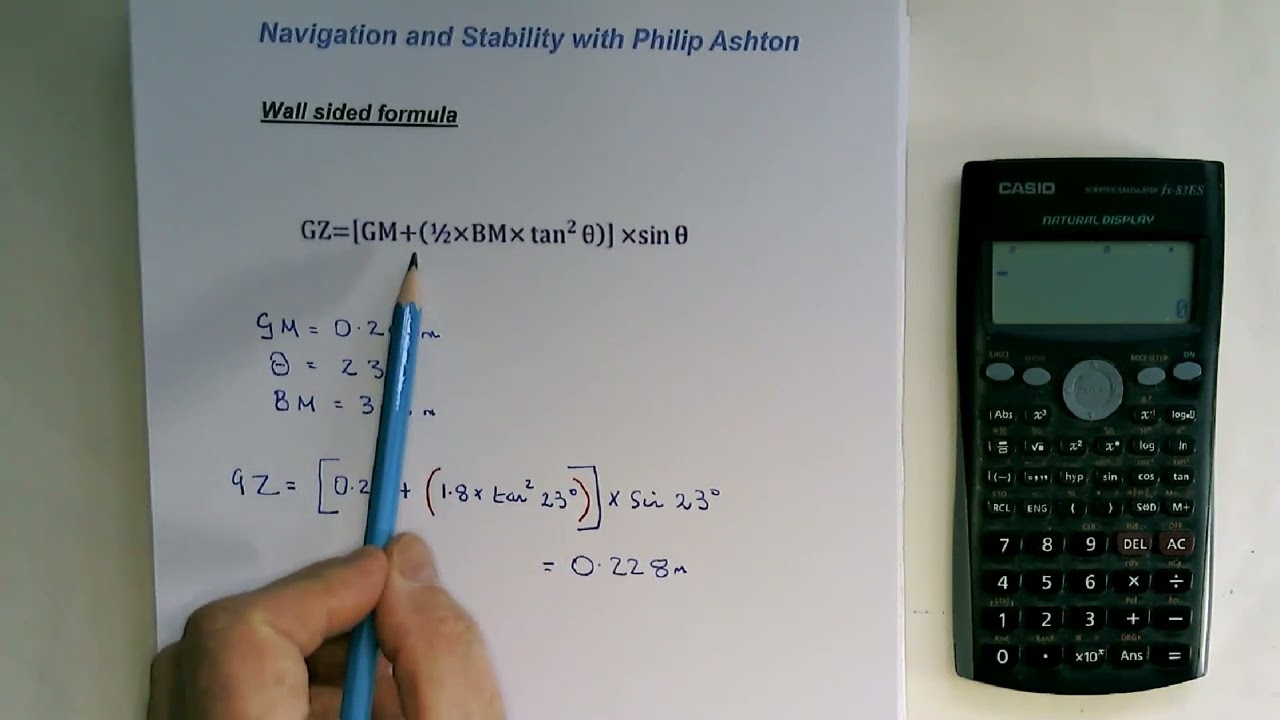 Navigation and Stability with Philip Ashton
Wall sided formula
GZ=[GM+(½×BM×tan² θ)] ×sin θ
GM = 0.2 m
θ = 23
BM = 3 m
GZ = [0.2 + (1.8 × tan² 23°)] × Sin 23°
= 0.228m
CASIO
SCIENTIFIC CALCULATOR fx-83ES
NATURAL DISPLAY
SHIFT MODE SETUP ON
Abs x³ x⁻¹ log
x² log ln
(−) hyp sin cos tan
RCL ENG ( ) S⇔D M+
7 8 9 DEL AC
4 5 6 × ÷
1 2 3 + −
0 . ×10ˣ Ans =